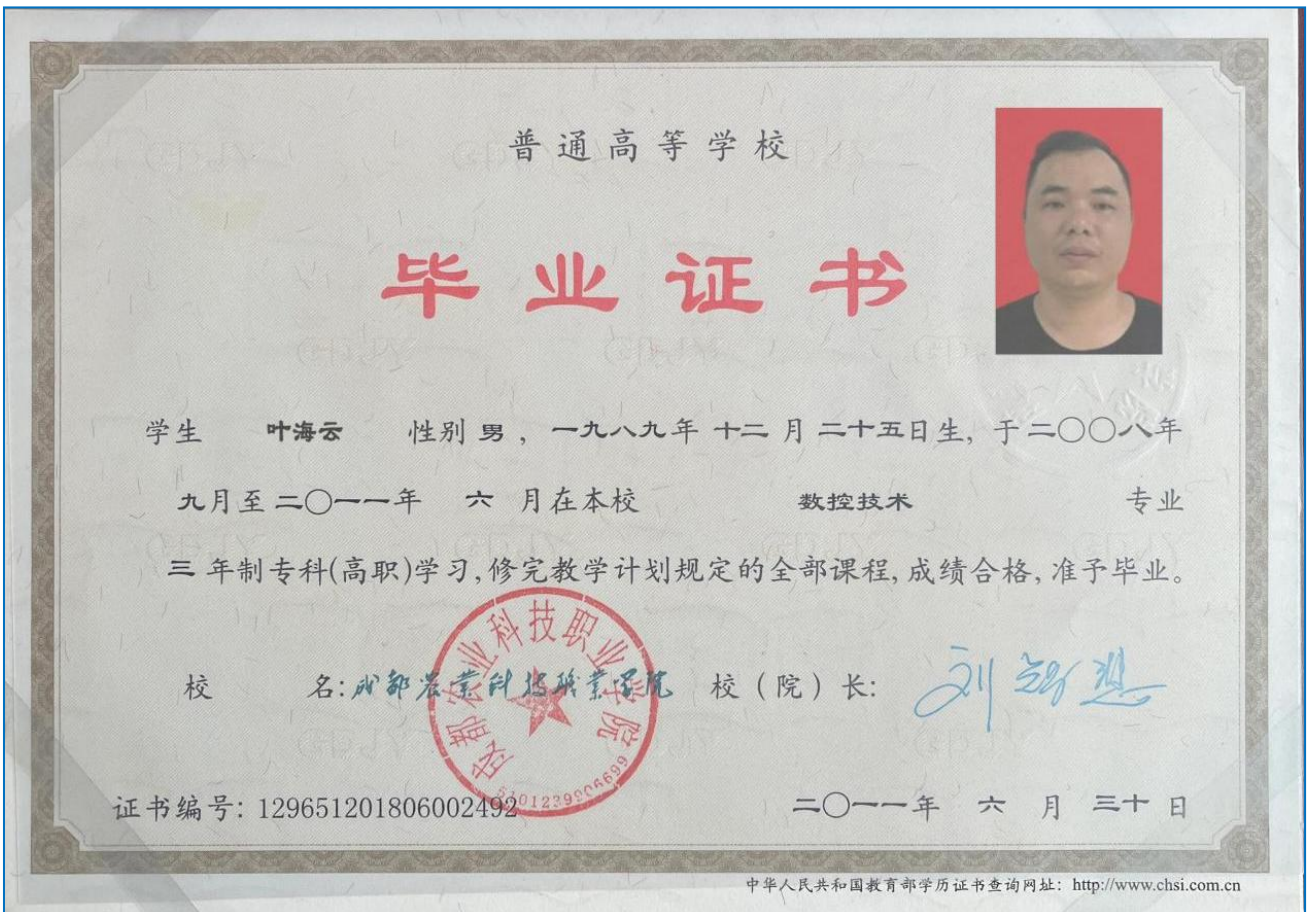 普通高等学校
毕业证书
学生 叶海云 性别 男，一九八九年 十二 月 二十五日生，于二〇〇八年
九月至二〇一一年 六 月在本校 数控技术 专业
三 年制专科(高职)学习,修完教学计划规定的全部课程,成绩合格,准予毕业。
校 名:成都农业科技职业学院 校（院）长:
成都农业科技职业学院
证书编号: 129651201806002492
二〇一一年 六 月 三十 日
中华人民共和国教育部学历证书查询网址: http://www.chsi.com.cn